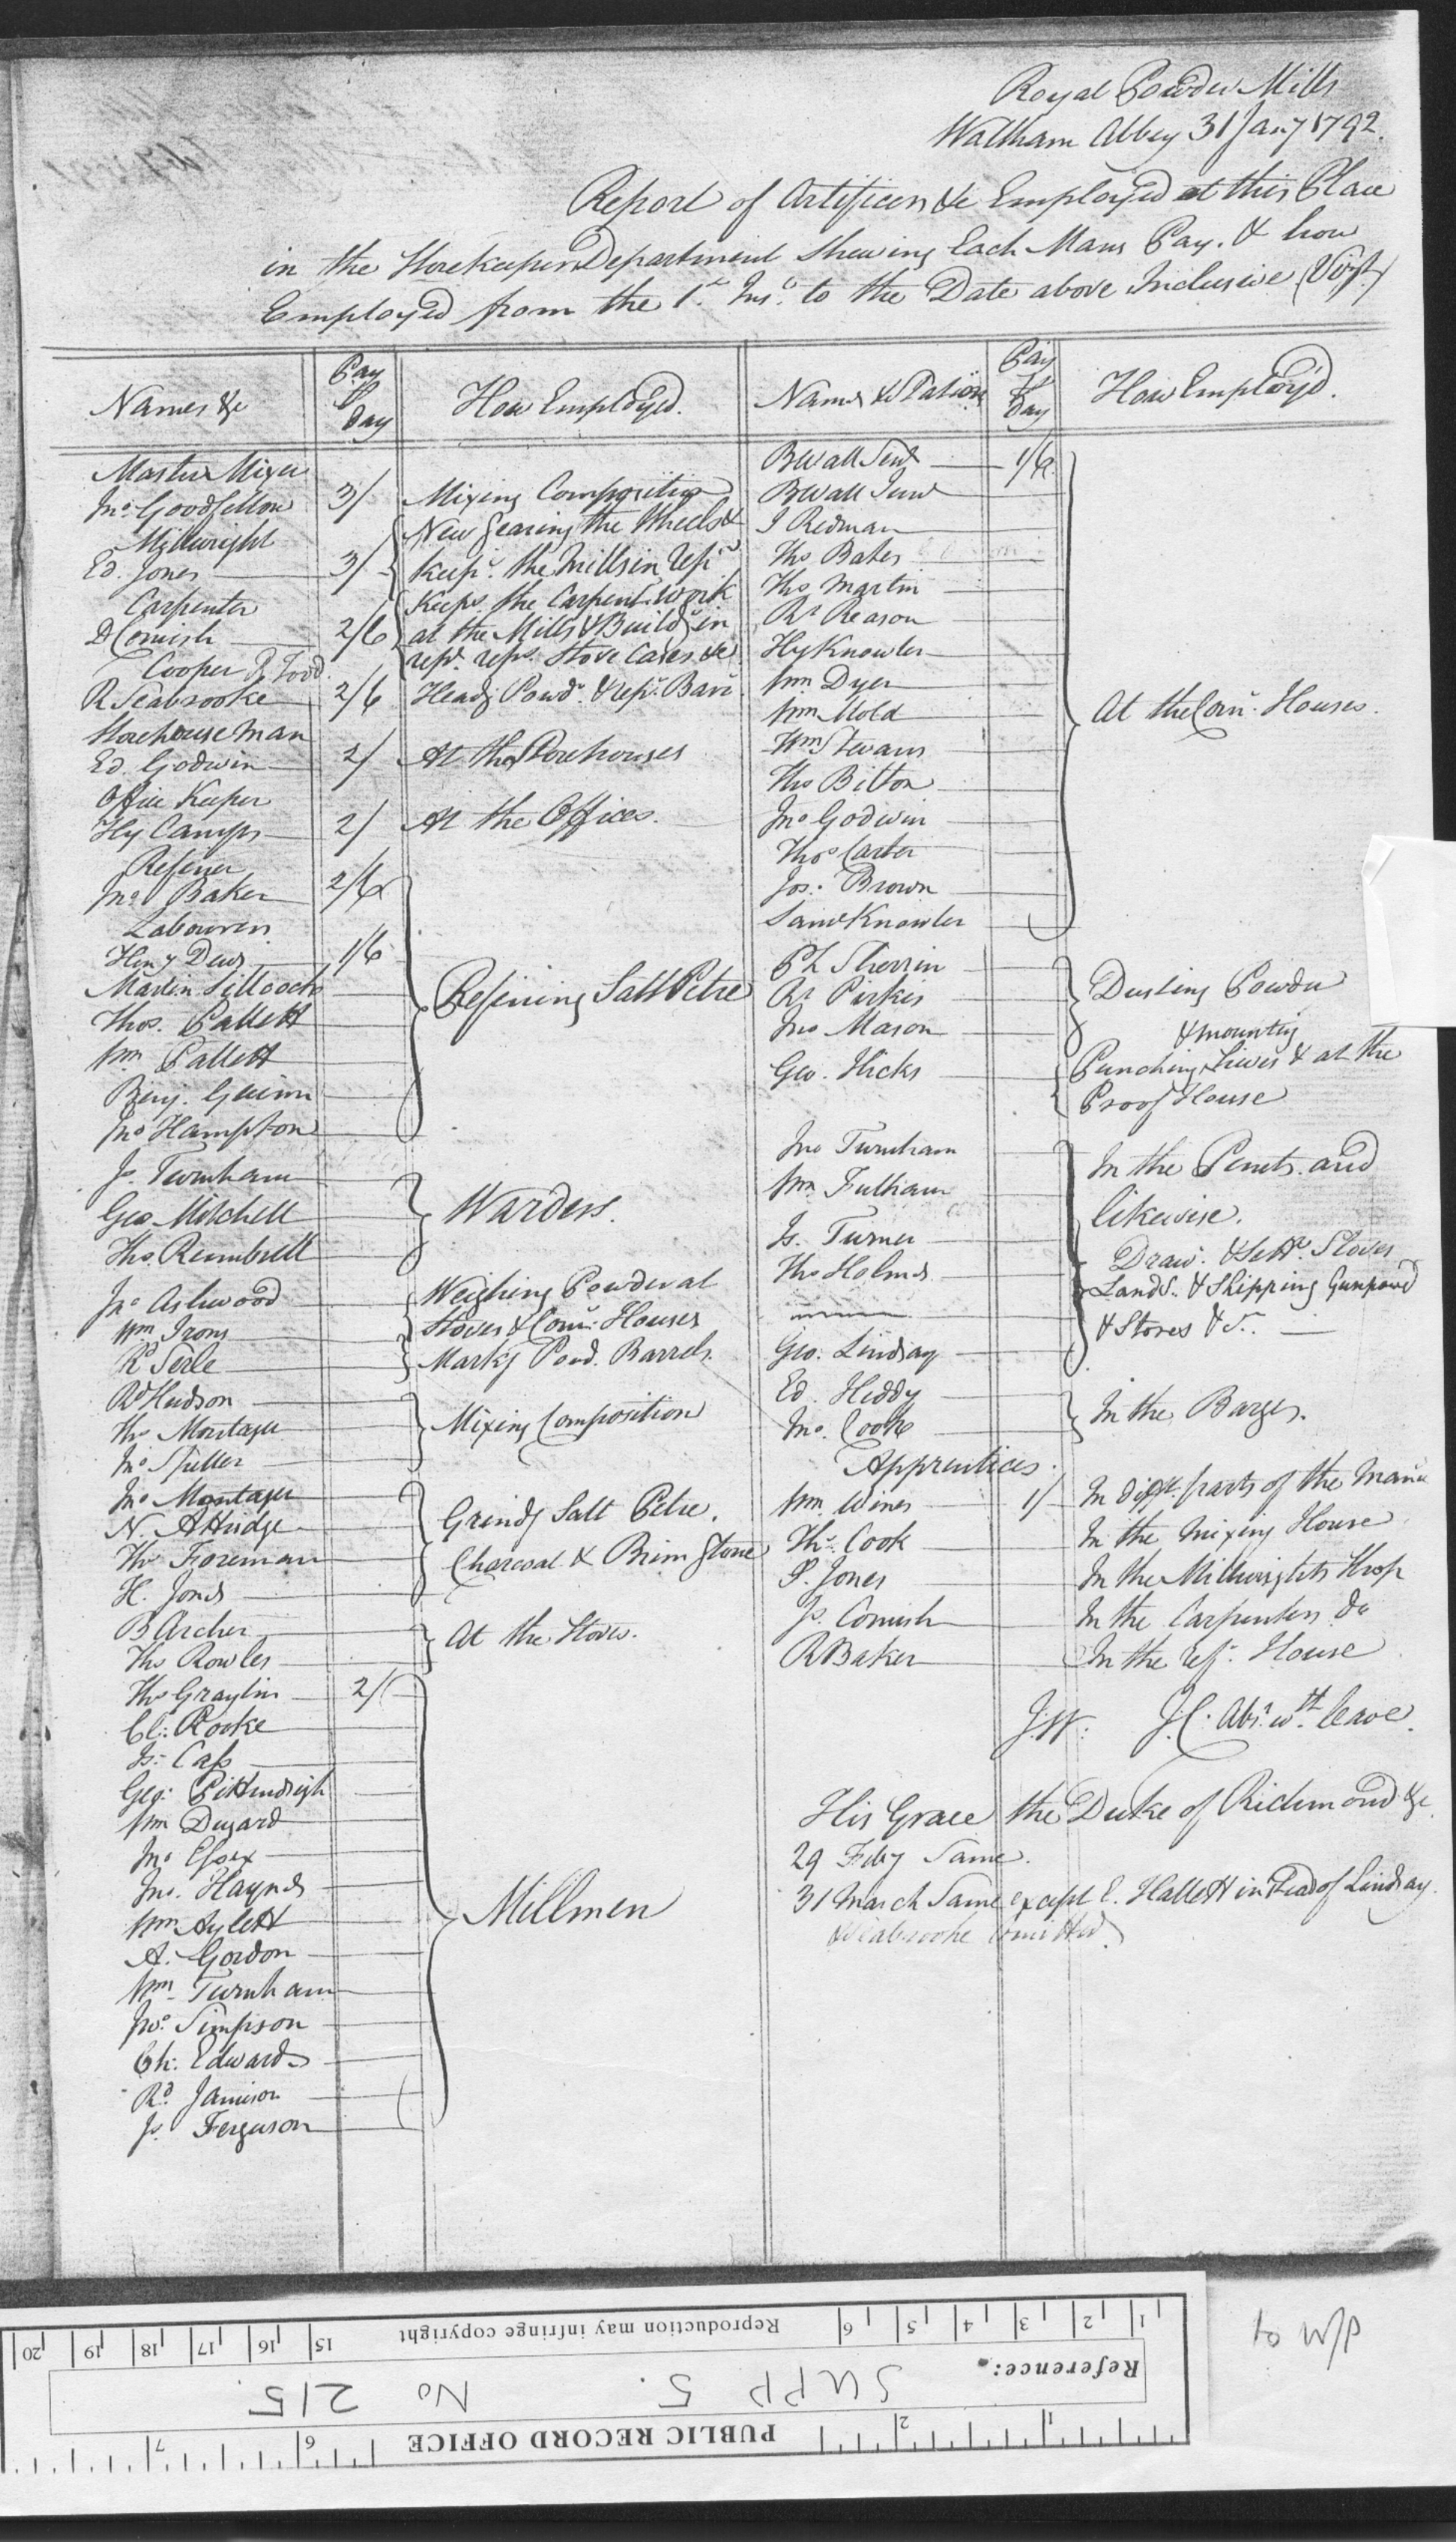 Royal Powder Mills
Waltham Abbey 31 Jany 1792.
Report of Artificers &c Employed at this Place
in the Storekeepers Department Shewing Each Mans Pay. & how
Employed from the 1st Inst. to the Date above Inclusive (Vizt.)
Names &c
Pay P Day
How Employed.
Master Mixer
Jno. Goodfellow 3/ Mixing Composition
Millwright
Ed. Jones 3/ New Gearing the Wheels &
Keepg. the Mills in repr
Carpenter
D Cornish 2/6 Keepg. the Carpent. Work
at the Mills & Buildgs in
repr. repg. Stove Cases &c
Cooper
R Seabrooke 2/6 Headg Powdr. & repg. Barr.
Storehouse Man
Ed. Godwin 2/ At the Storehouses
Office Keeper
Hy Camps 2/ At the Offices.
Refiner
Jno. Baker 2/6
Labourers
Heny Dews 1/6
Martin Sillcock
Thos. Pallett
Wm Pallett
Benj. Guinn
Jno Hampton
Refining Salt Petre
Js. Turnham
Geo Mitchell
Thos. Rumbell
Warders.
Jno Ashwood
Wm Irons
Weighing Powder at
Stoves & Corng. Houses
R Serle
Markg Powd. Barrels.
Rd Hudson
Thos Montague
Jno Spiller
Mixing Composition
Jno Montague
N. Attridge
Thos Foreman
H. Jones
Grindg Salt Petre.
Charcoal & Brimstone
B Archer
Thos Rowles
At the Stoves.
Thos Graylin 2/
Cl: Rooke
Js: Cass
Geo: Pittendrigh
Wm Dugard
Jno Essex
Jno. Haynes
Wm Aylett
A. Gordon
Wm Turnham
Jno. Simpson
Ch. Edwards
Rd. Jamison
Js. Ferguson
Millmen
Names & Station
Pay P Day
How Employ'd.
B Wall Senr 1/6.
B Wall Junr
J Redman
Thos Bates
Thos Martin
Rt Reason
Hy Knowler
Wm Dyer
Wm Mold
Wm Stevans
Thos Bilton
Jno Godwin
Thos Carter
Jos: Brown
Saml Knowler
At the Corng. Houses.
Ph Sherrin
Rt Pirkis
Jno Mason
Dusting Powder
Geo. Hicks
& mounting
Punching Sieves & at the
Proof House
Jno Turnham
Wm Fulham
Js. Turner
Thos Holmes
Geo: Lindsay
In the Punts. and
likewise.
Drawg. & Settg. Stoves
Landg. & Shipping Gunpowd
& Stores &c.
Ed. Hiddy
Jno. Cooke
In the Barges.
Apprentices.
Wm Wines 1/ In difft. parts of the Manu
Thos. Cook In the Mixing House
P. Jones In the Millwrights Shop
Js. Cornish In the Carpenters do
R Baker In the refg. House
J:W: J.C. Abst. wth. leave.
His Grace the Duke of Richmond &c.
29 Feby Same.
31 March Same except E. Hallett in stead of Lindsay.
& Seabrooke omitted
PUBLIC RECORD OFFICE
Reference:
SUPP 5. No 215.
Reproduction may infringe copyright
to W/P